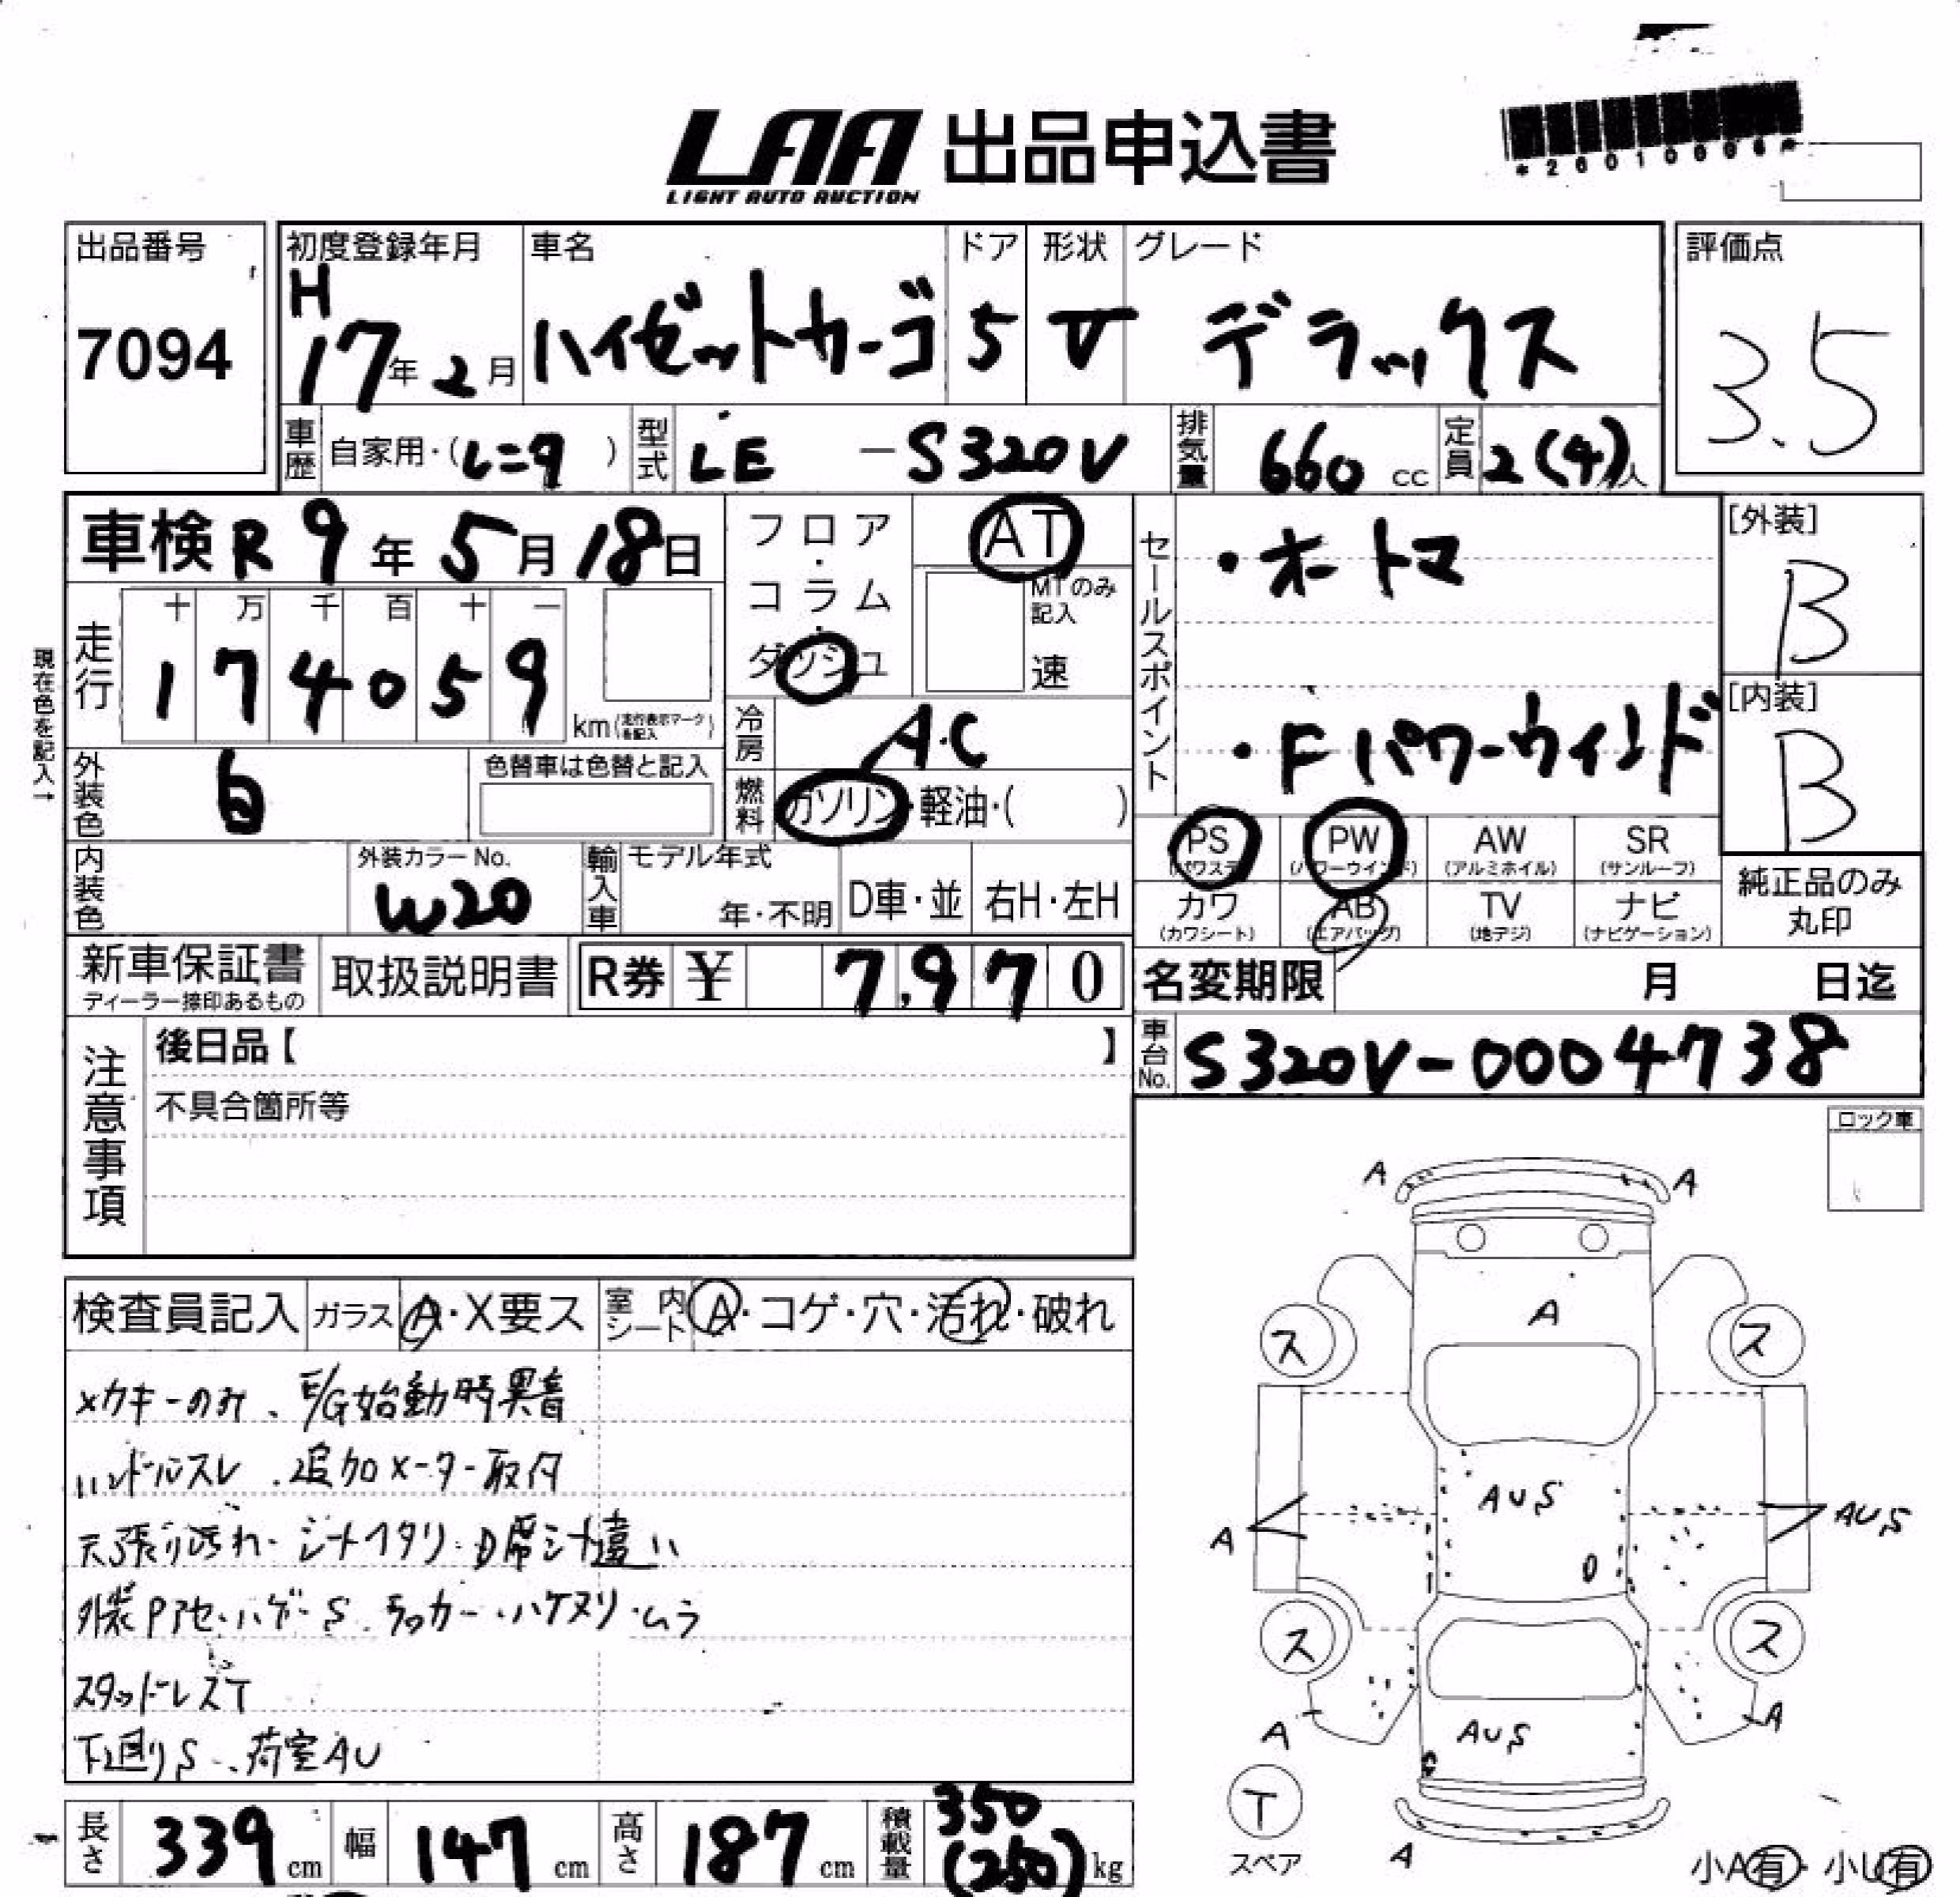 LAA 出品申込書
LIGHT AUTO AUCTION
出品番号
7094
初度登録年月
H
17年2月
車名
ハイゼットカーゴ
ドア
5
形状
V
グレード
デラックス
評価点
3.5
車歴 自家用・(レニタ)
型式 LE -S320V
排気量 660 cc
定員 2(4)人
車検 R9年5月18日
フロア・コラム・ダッシュ
AT
MTのみ記入
速
セールスポイント
・オートマ
・Fパワーウィンド
[外装]
B
[内装]
B
現在色を記入→
走行
十 万 千 百 十 一
1 7 4 0 5 9
km (走行表示マークを記入)
冷房 A・C
外装色 白
色替車は色替と記入
燃料 ガソリン・軽油・( )
PS (パワステ)
PW (パワーウインド)
AW (アルミホイル)
SR (サンルーフ)
カワ (カワシート)
AB (エアバッグ)
TV (地デジ)
ナビ (ナビゲーション)
純正品のみ丸印
内装色
外装カラーNo.
W20
輸入車
モデル年式
年・不明
D車・並
右H・左H
新車保証書
ディーラー捺印あるもの
取扱説明書
R券 ¥ 7,970
名変期限 月 日迄
車台No. S320V-0004738
注意事項
後日品【 】
不具合箇所等
ロック車
検査員記入
ガラス A・X要ス
室内シート A・コゲ・穴・汚れ・破れ
メカキーのみ、E/G始動時異音
ハンドルスレ、追加メーター取付
天張り汚れ・シートヘタリ・D席シート違い
外装Pアセ・ハゲ・S、ラッカー・ハケヌリ・ムラ
スタッドレスT
下廻りS、荷室AU
A
A
A
ス
ス
AUS
A
AUS
ス
ス
A
AUS
A
T
スペア
A
小A有・小U有
長さ 339 cm
幅 147 cm
高さ 187 cm
積載量 350 (250) kg